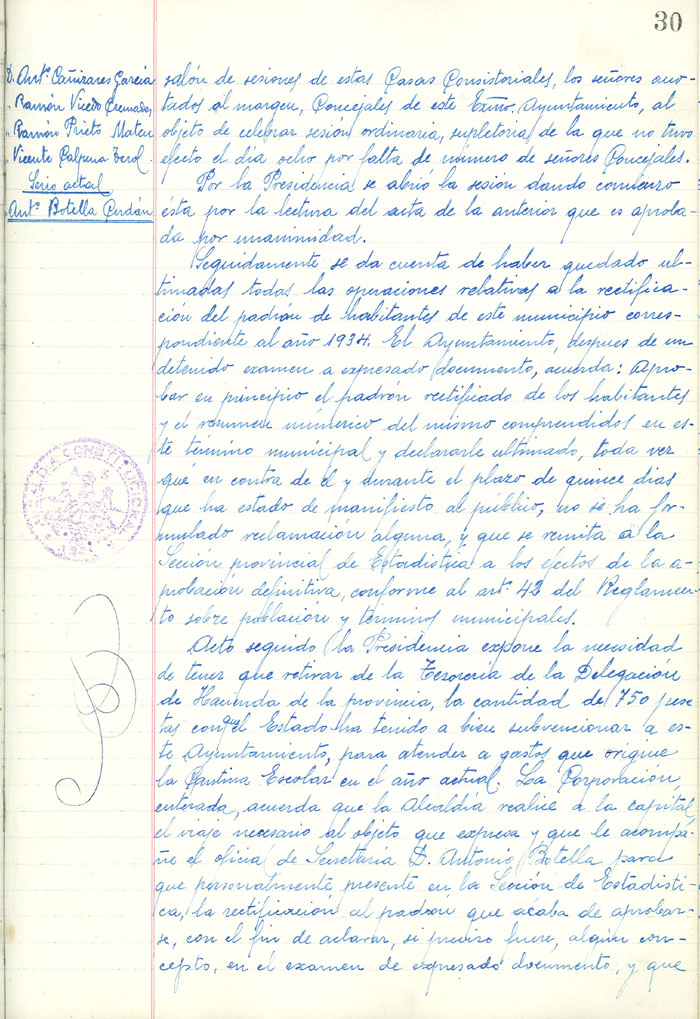 30
D. Antº Cañizares García
" Ramón Vicedo
" Ramón Prieto Mateu
" Vicente Calpena Terol
Serio actal
Antº Botella Cerdán
salón de sesiones de estas Casas Consistoriales, los señores ano-
tados al margen, Concejales de este Exmo. Ayuntamiento, al
objeto de celebrar sesión ordinaria, supletoria de la que no tuvo
efecto el día ocho por falta de número de señores Concejales.
Por la Presidencia se abrió la sesión dando comienzo
ésta por la lectura del acta de la anterior que es aproba-
da por unanimidad.
Seguidamente se da cuenta de haber quedado ul-
timadas todas las operaciones relativas a la rectifica-
ción del padrón de habitantes de este municipio corres-
pondiente al año 1934. El Ayuntamiento, despues de un
detenido examen a expresado documento, acuerda: Apro-
bar en principio el padrón rectificado de los habitantes
y el resumen númerico del mismo comprendidos en es-
te término municipal y declararle ultimado, toda vez
que en contra de él y durante el plazo de quince dias
que ha estado de manifiesto al público, no se ha for-
mulado reclamación alguna, y que se remita a la
Sección provincial de Estadística a los efectos de la a-
probación definitiva, conforme al artº 42 del Reglamen-
to sobre población y términos municipales.
Acto seguido la Presidencia expone la necesidad
de tener que retirar de la Tesoreria de la Delegación
de Hacienda de la provincia, la cantidad de 750 pese
tas con que el Estado ha tenido a bien subvencionar a es-
te Ayuntamiento, para atender a gastos que origine
la Cantina Escolar en el año actual. La Corporación,
enterada, acuerda que la Alcaldía realice a la capital
el viaje necesario al objeto que expresa y que le acompa-
ñe el oficial de Secretaria D. Antonio Botella para
que personalmente presente en la Sección de Estadísti-
ca, la rectificación al padrón que acaba de aprobar-
se, con el fin de aclarar, si preciso fuere, algún con-
cepto, en el examen de expresado documento, y que